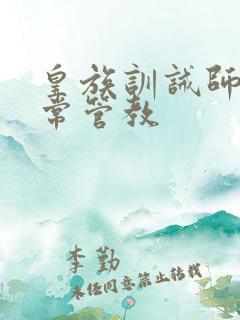 皇族訓誡師
常管教
李勤
未经同意禁止转载